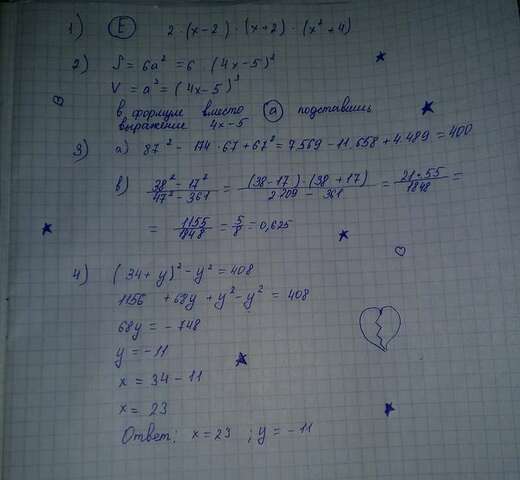 1) E 2·(x-2)·(x+2)·(x²+4)
2) S = 6a² = 6·(4x-5)²
V = a³ = (4x-5)³
в формуле вместо a подставишь
выражение 4x-5
3) а) 87² - 174·67 + 67² = 7.569 - 11.658 + 4.489 = 400
в) (38² - 17²)/(47² - 361) = ((38-17)·(38+17))/(2209 - 361) = (21·55)/1848 =
= 1155/1848 = 5/8 = 0,625
4) (34+y)² - y² = 408
1156 + 68y + y² - y² = 408
68y = -748
y = -11
x = 34 - 11
x = 23
Ответ: x = 23 ; y = -11